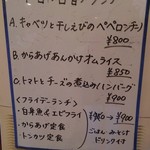 A. キャベツと干しえびのペペロンチーノ
¥800
B. からあげあんかけオムライス
¥850
C. トマトとチーズの煮込みハンバーグ
¥900
〈フライデーランチ〉
・白身魚&エビフライ
・からあげ定食
・トンカツ定食
→ ¥900
ごはん みそ汁
ドリンク付